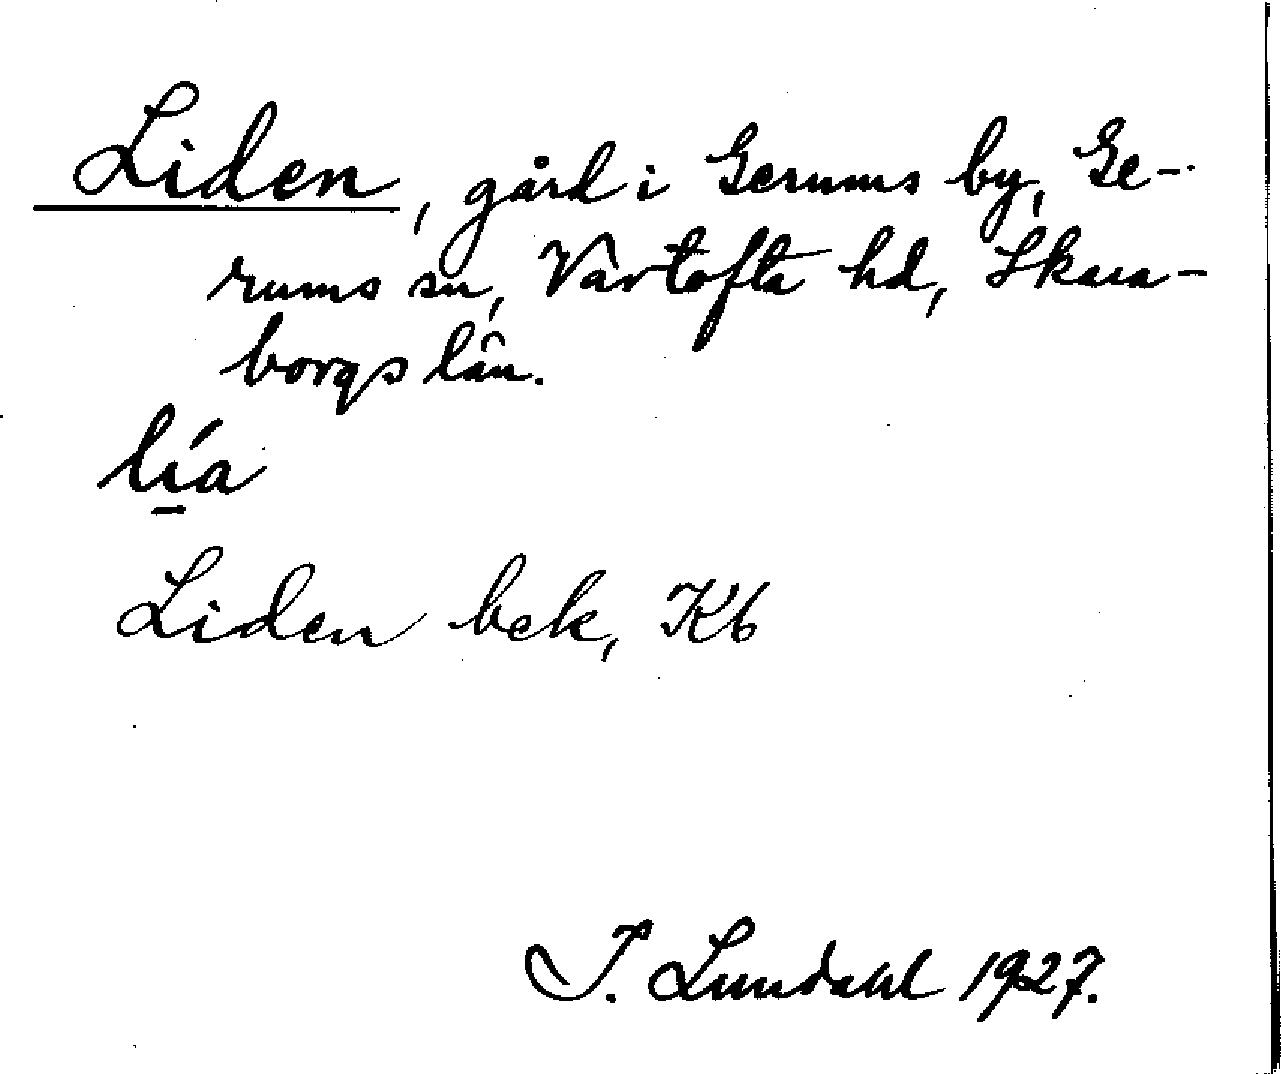 Liden, gård i Gerums by, Ge-
rums sn, Vartofta hd, Skara-
borgs län.
lı̱́a
Liden bek, Kb
I. Lundahl 1927.